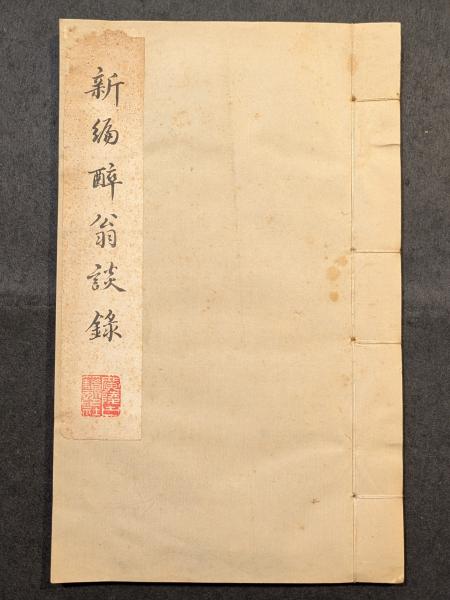 新編醉翁談錄